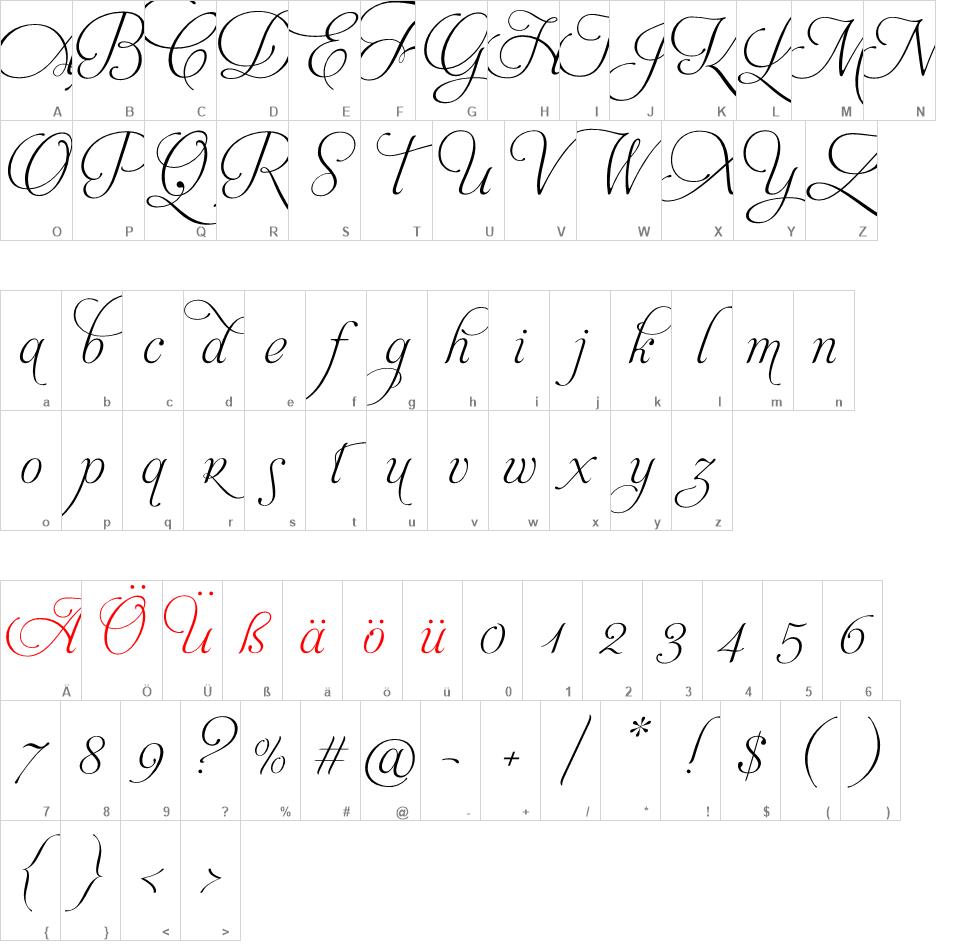 A B C D E F G H I J K L M N
A B C D E F G H I J K L M N
O P Q R S T U V W X Y Z
O P Q R S T U V W X Y Z
a b c d e f g h i j k l m n
a b c d e f g h i j k l m n
o p q r s t u v w x y z
o p q r s t u v w x y z
Ä Ö Ü ß ä ö ü 0 1 2 3 4 5 6
Ä Ö Ü ß ä ö ü 0 1 2 3 4 5 6
7 8 9 ? % # @ - + / * ! $ ( )
7 8 9 ? % # @ - + / * ! $ ( )
{ } < >
{ } < >